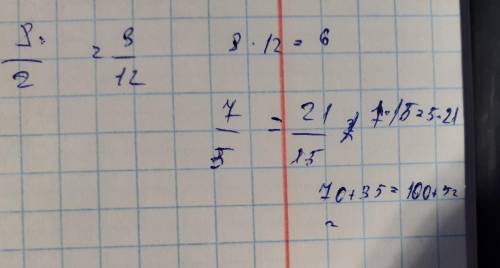 = 9/12
8 · 12 = 6
7/5 = 21/15
7 · 15 = 5 · 21
70 + 35 = 100 + 5 =
=